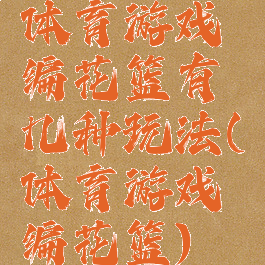 体育游戏
编花篮有
几种玩法(
体育游戏
编花篮)